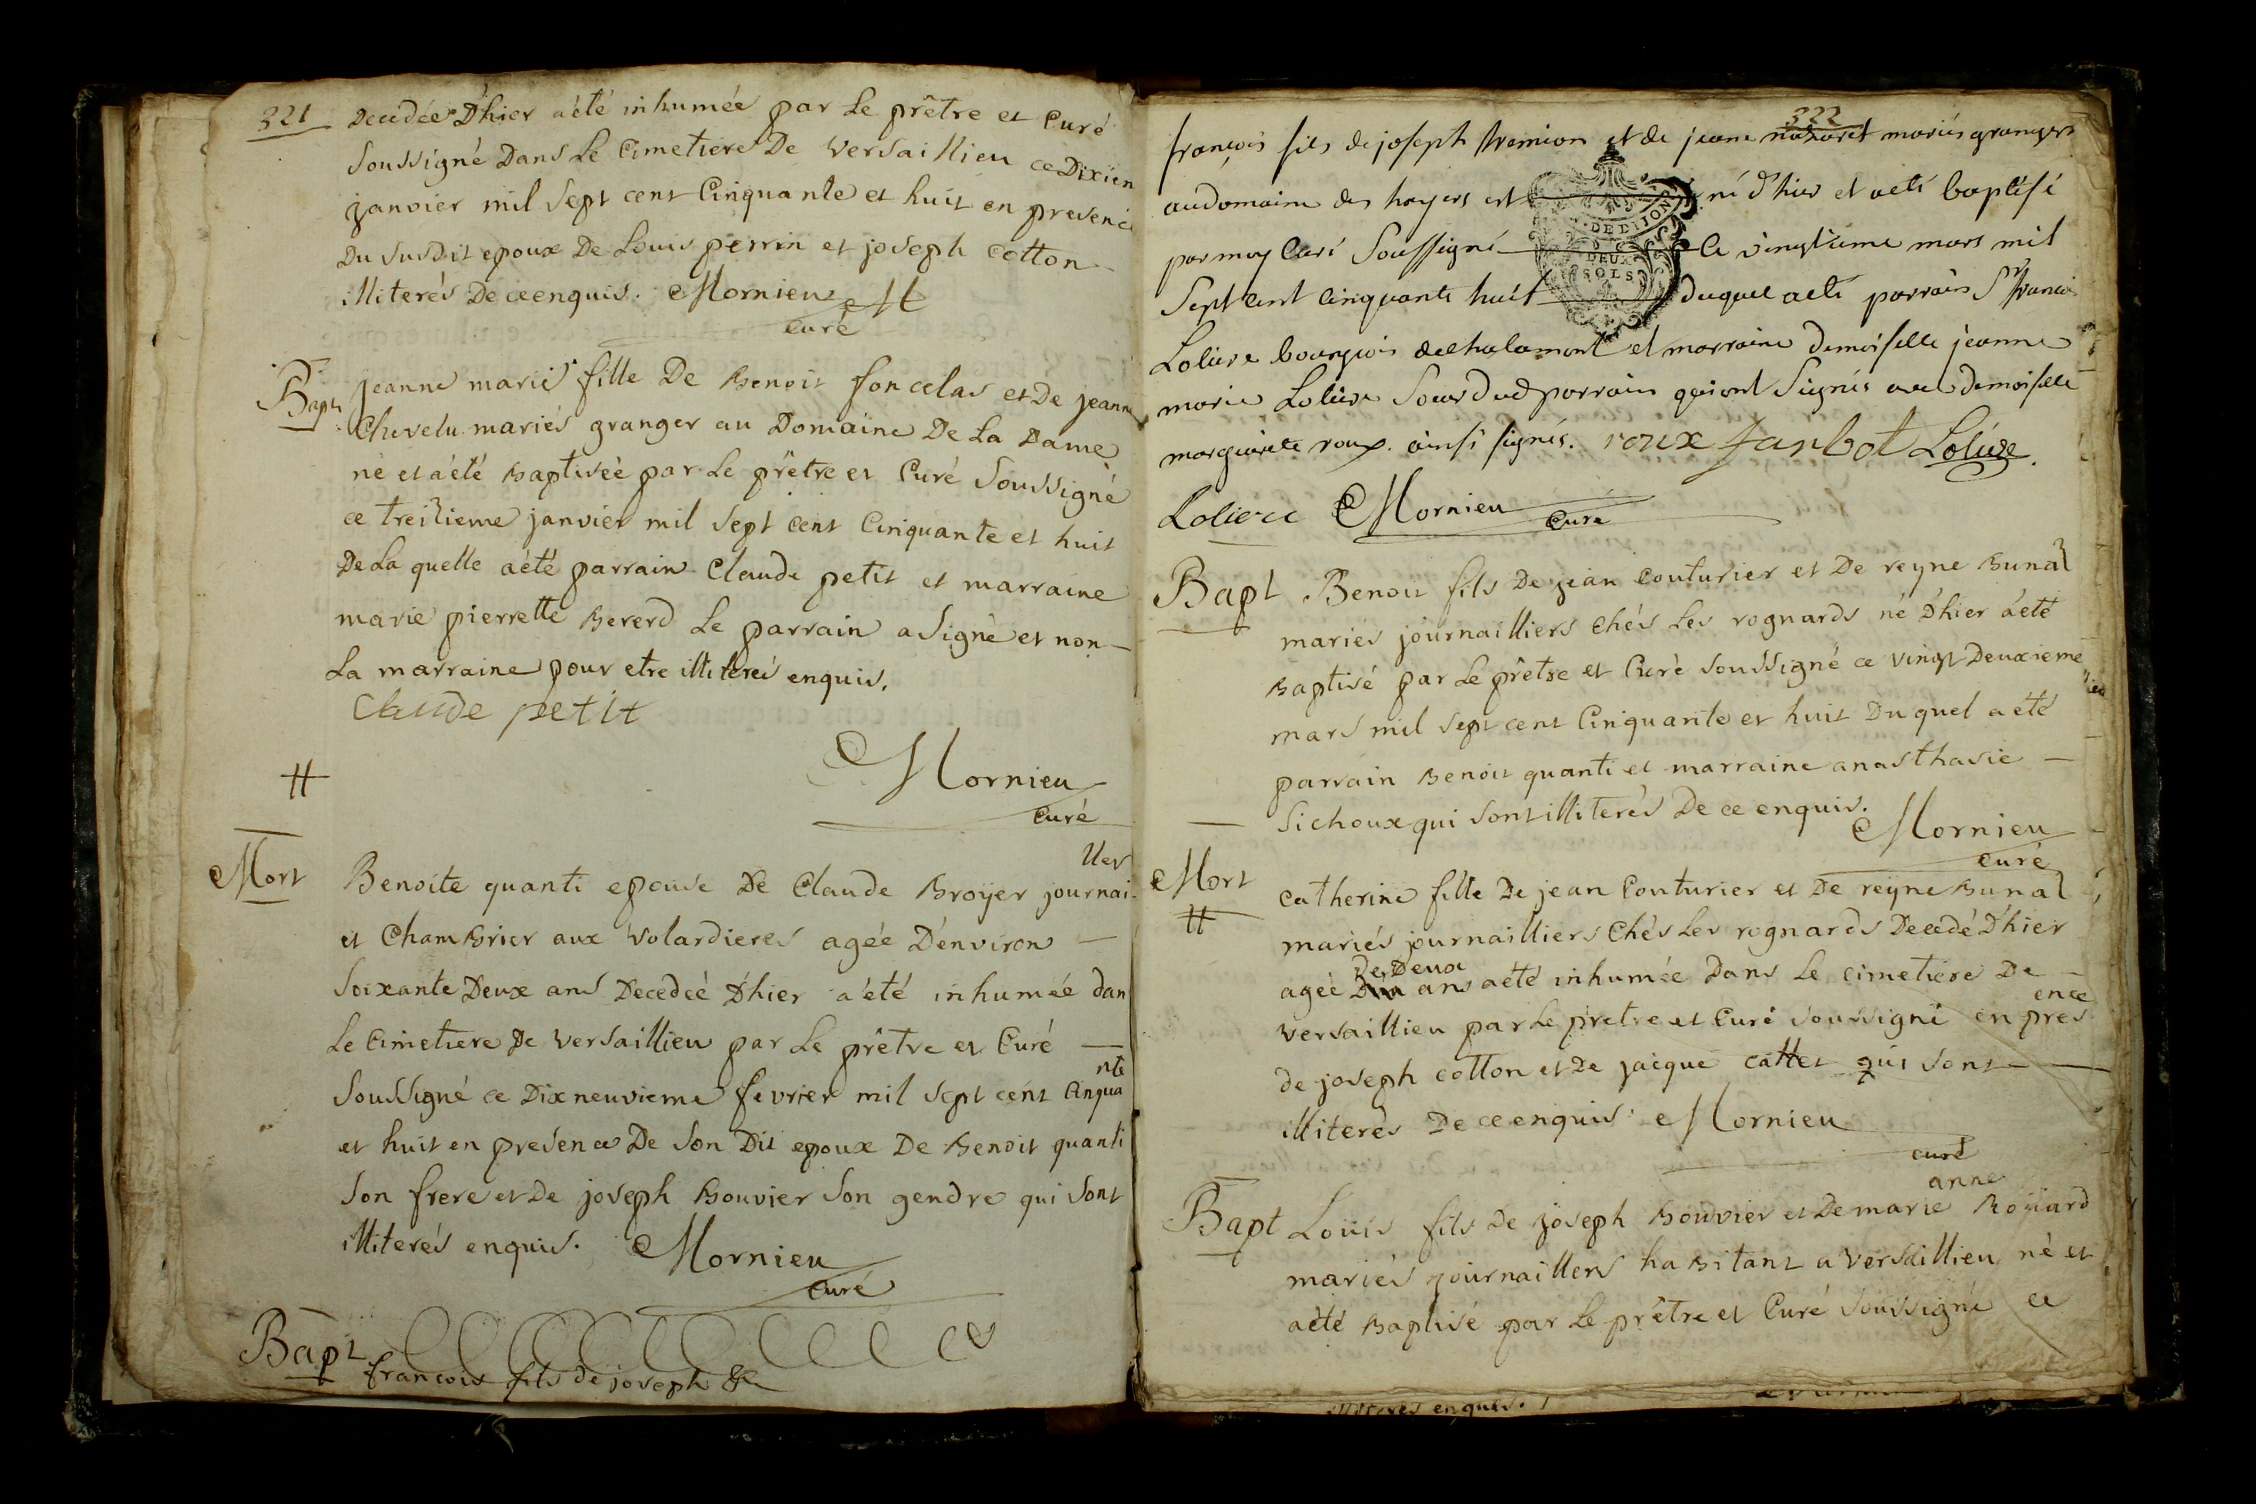 321
Decedée D'hier a été inhumée par Le prêtre et Curé
Soussigné Dans Le Cimetiere De Versaillieu ce Dixien
janvier mil Sept cent Cinquante et huit en presence
Du Susdit epoux De Louis perrin et joseph Cotton
illiterés De ce enquis. Mornieu
Curé
Bapt
jeanne marie fille De Benoit foncelas et De jeanne
Chevelu mariés granger au Domaine De La Dame
né et a été Baptisée par Le prêtre et Curé Soussigné
ce treizieme janvier mil Sept cent Cinquante et huit
De La quelle a été parrain Claude petit et marraine
marie pierrette Bererd Le parrain a Signé et non
La marraine pour etre illiterés enquis.
Claude petit
Mornieu
Curé
Mort
Benoite quanti epouse De Claude Broyer journai-
llier
et Chambrier aux Volardieres agée D'environ
Soixante Deux ans Decedeé D'hier a été inhumée dan
Le Cimetiere De Versaillieu par Le prêtre et Curé
Soussigné ce Dixneuvieme fevrier mil Sept cent Cinqua
nte
et huit en presence De Son Dit epoux De Benoit quanti
Son frere et De joseph Bouvier Son gendre qui Sont
illiterés enquis. Mornieu
Curé
Bapt
francois fils de joseph &c
322
françois fils de joseph tremion et de jeane nazaret mariés grangers
au domaine des hayes est né d'hier et a eté baptisé
par moy Curé Soussigné Ce vingtieme mars mil
Sept cent cinquante huit duquel a eté parrain Sr francois
DEDITION
DEUX
SOLS
Loliere bourgeois de chalamont et marraine demoiselle jeanne
marie Loliere Soeur dud parrain qui ont Signés avec demoiselle
marguerite roux. ainsi signés. roux Janbot Loliere.
Loliere Mornieu
Curé
Bapt
Benoit fils De jean Couturier et De reyne Bunal
mariés journailliers chés Les rognards né D'hier a été
Baptisé par Le prêtre et Curé Soussigné ce vingt Deuxieme
mars mil Sept cent Cinquante et huit Du quel a été
parrain Benoit quanti et marraine anasthasie
Sichoux qui Sont illiterés De ce enquis.
Mornieu
Curé
Mort
Catherine fille De jean Couturier et De reyne Bunal
mariés journailliers Chés Les rognards Decedé D'hier
De Deux
ageé ans a été inhumée Dans Le Cimetiere De
Versaillieu par Le pretre et Curé Soussigné en pres
ence
de joseph Cotton et De jacque Cattet qui Sont
illiterés De ce enquis. Mornieu
Curé
Bapt
anne
Louis fils De joseph Bouvier et De marie Roüard
mariés journailliers habitant a Versaillieu né et
a été Baptisé par Le prêtre et Curé Soussigné ce
illiterés enquis.